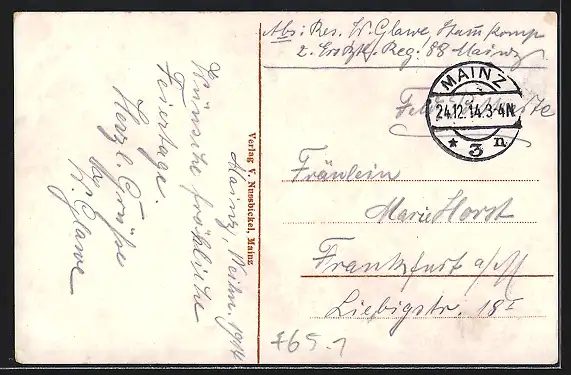 Abs: Res. W. Glawe, Stamm Komp
2. Ers. Btl. Reg: 88 Mainz
MAINZ
24.12.14.3-4N
* 3 n
Feldpostkarte
Fräulein
Marie Horst
Frankfurt a/M
Liebigstr. 18 I
Mainz, Weihn. 1914
Wünsche fröhliche
Feiertage.
Herzl. Grüße
W. Glawe
Verlag V. Nussbickel, Mainz
765.-1